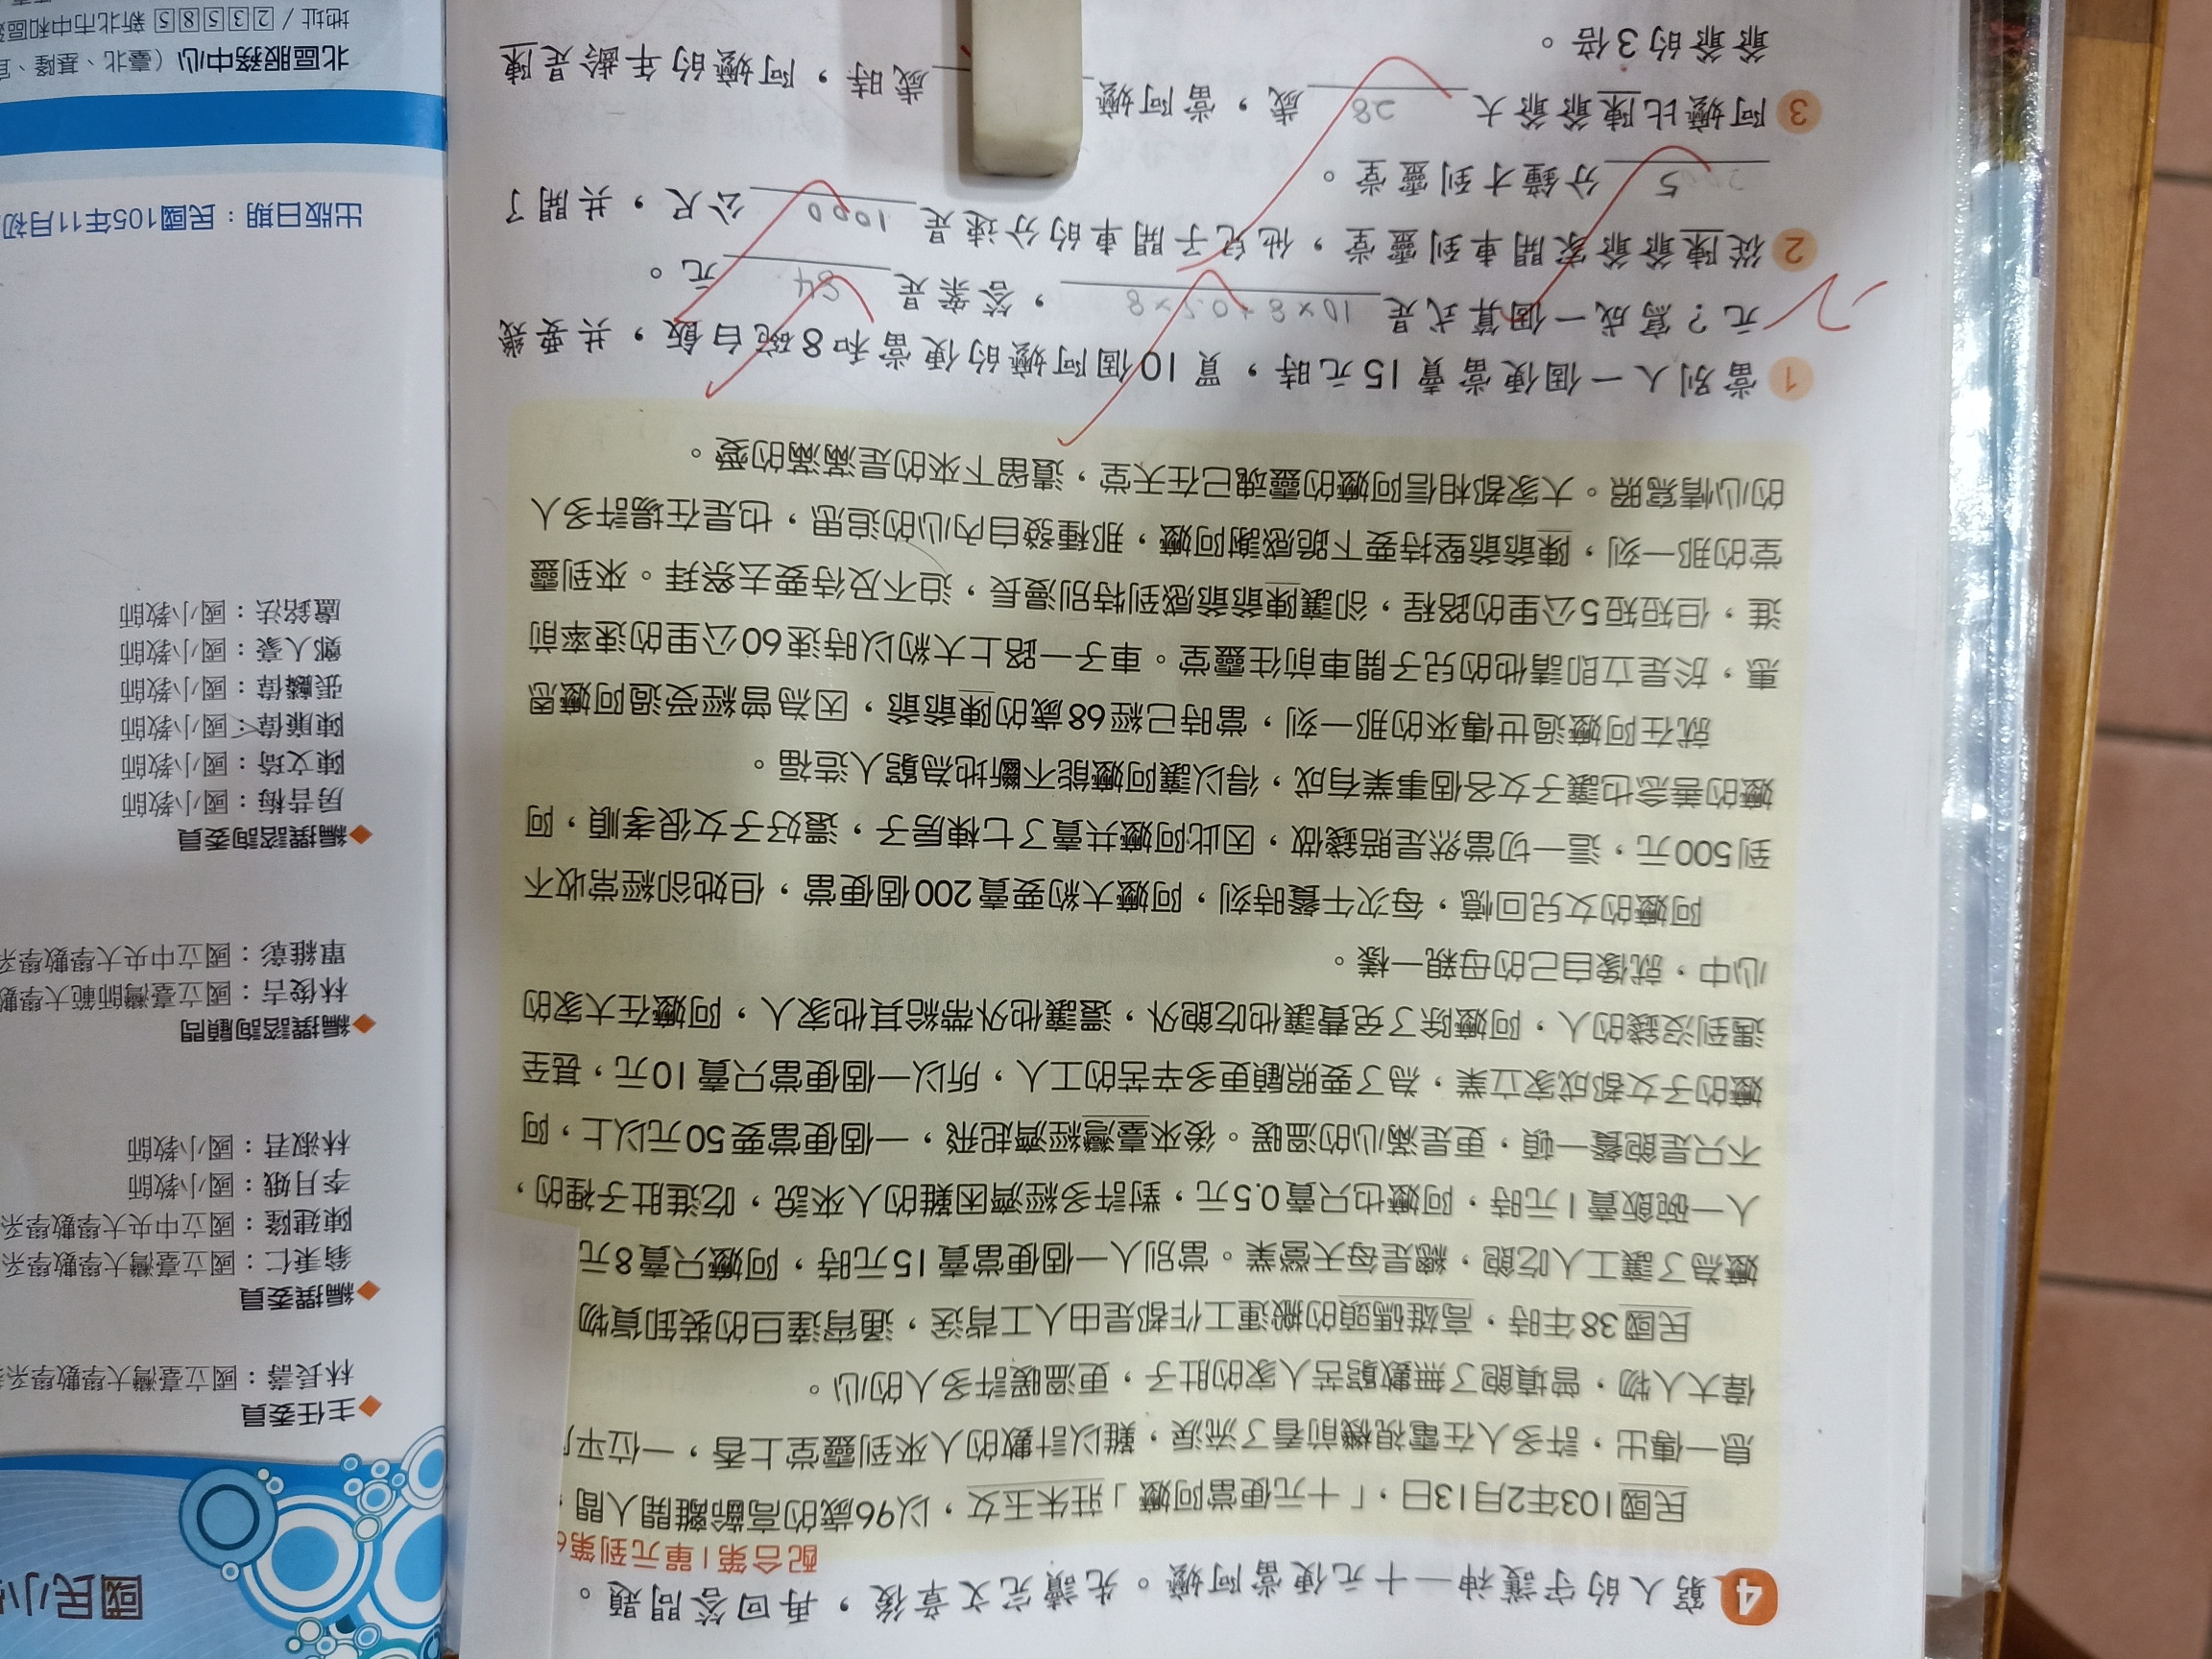 4 窮人的守護神—十元便當阿嬤。先讀完文章後，再回答問題。
配合第1單元到第6
民國103年2月13日，「十元便當阿嬤」莊朱玉女，以96歲的高齡離開人間，
息一傳出，許多人在電視機前看了流淚，難以計數的人來到靈堂上香，一位平
偉大人物，當填飽了無數窮苦人家的肚子，更溫暖許多人的心。
民國38年時，高雄碼頭的搬運工作都是由人工背送，通宵達旦的裝卸貨物
嬤為了讓工人吃飽，總是每天營業。當別人一個便當賣15元時，阿嬤只賣8元
人一碗飯賣1元時，阿嬤也只賣0.5元，對許多經濟困難的人來說，吃進肚子裡的，
不只是飽餐一頓，更是滿心的溫暖。後來臺灣經濟起飛，一個便當要50元以上，阿
嬤的子女都成家立業，為了要照顧更多辛苦的工人，所以一個便當只賣10元，甚至
遇到沒錢的人，阿嬤除了免費讓他吃飽外，還讓他外帶給其他家人，阿嬤在大家的
心中，就像自己的母親一樣。
阿嬤的女兒回憶，每次午餐時刻，阿嬤大約要賣200個便當，但她卻經常收不
到500元，這一切當然是賠錢做，因此阿嬤共賣了七棟房子，還好子女很孝順，阿
嬤的善念也讓子女各個事業有成，得以讓阿嬤能不斷地為窮人造福。
就在阿嬤過世傳來的那一刻，當時已經68歲的陳爺爺，因為曾經受過阿嬤恩
惠，於是立即請他的兒子開車前往靈堂。車子一路上大約以時速60公里的速率前
進，但短短5公里的路程，卻讓陳爺爺感到特別漫長，迫不及待要去祭拜。來到靈
堂的那一刻，陳爺爺堅持要下跪感謝阿嬤，那種發自內心的追思，也是在場許多人
的心情寫照。大家都相信阿嬤的靈魂已在天堂，遺留下來的是滿滿的愛。
1 當別人一個便當賣15元時，買10個阿嬤的便當和8碗白飯，共要幾
元？寫成一個算式是 10×8+0.5×8，答案是 84 元。
2 從陳爺爺家開車到靈堂，他兒子開車的分速是 1000 公尺，共開了
5 分鐘才到靈堂。
3 阿嬤比陳爺爺大 28 歲，當阿嬤 歲時，阿嬤的年齡是陳
爺爺的3倍。
國民小
◆主任委員
林長壽：國立臺灣大學數學系
◆編撰委員
翁秉仁：國立臺灣大學數學系
陳建隆：國立中央大學數學系
李月娥：國小教師
林淑君：國小教師
◆編撰諮詢顧問
林俊吉：國立臺灣師範大學數
單維彰：國立中央大學數學系
◆編撰諮詢委員
房昔梅：國小教師
陳文琦：國小教師
陳廉偉：國小教師
張麟偉：國小教師
鄭人豪：國小教師
盧銘法：國小教師
出版日期：民國105年11月初
北區服務中心（臺北、基隆、宜
地址／23585 新北市中和區